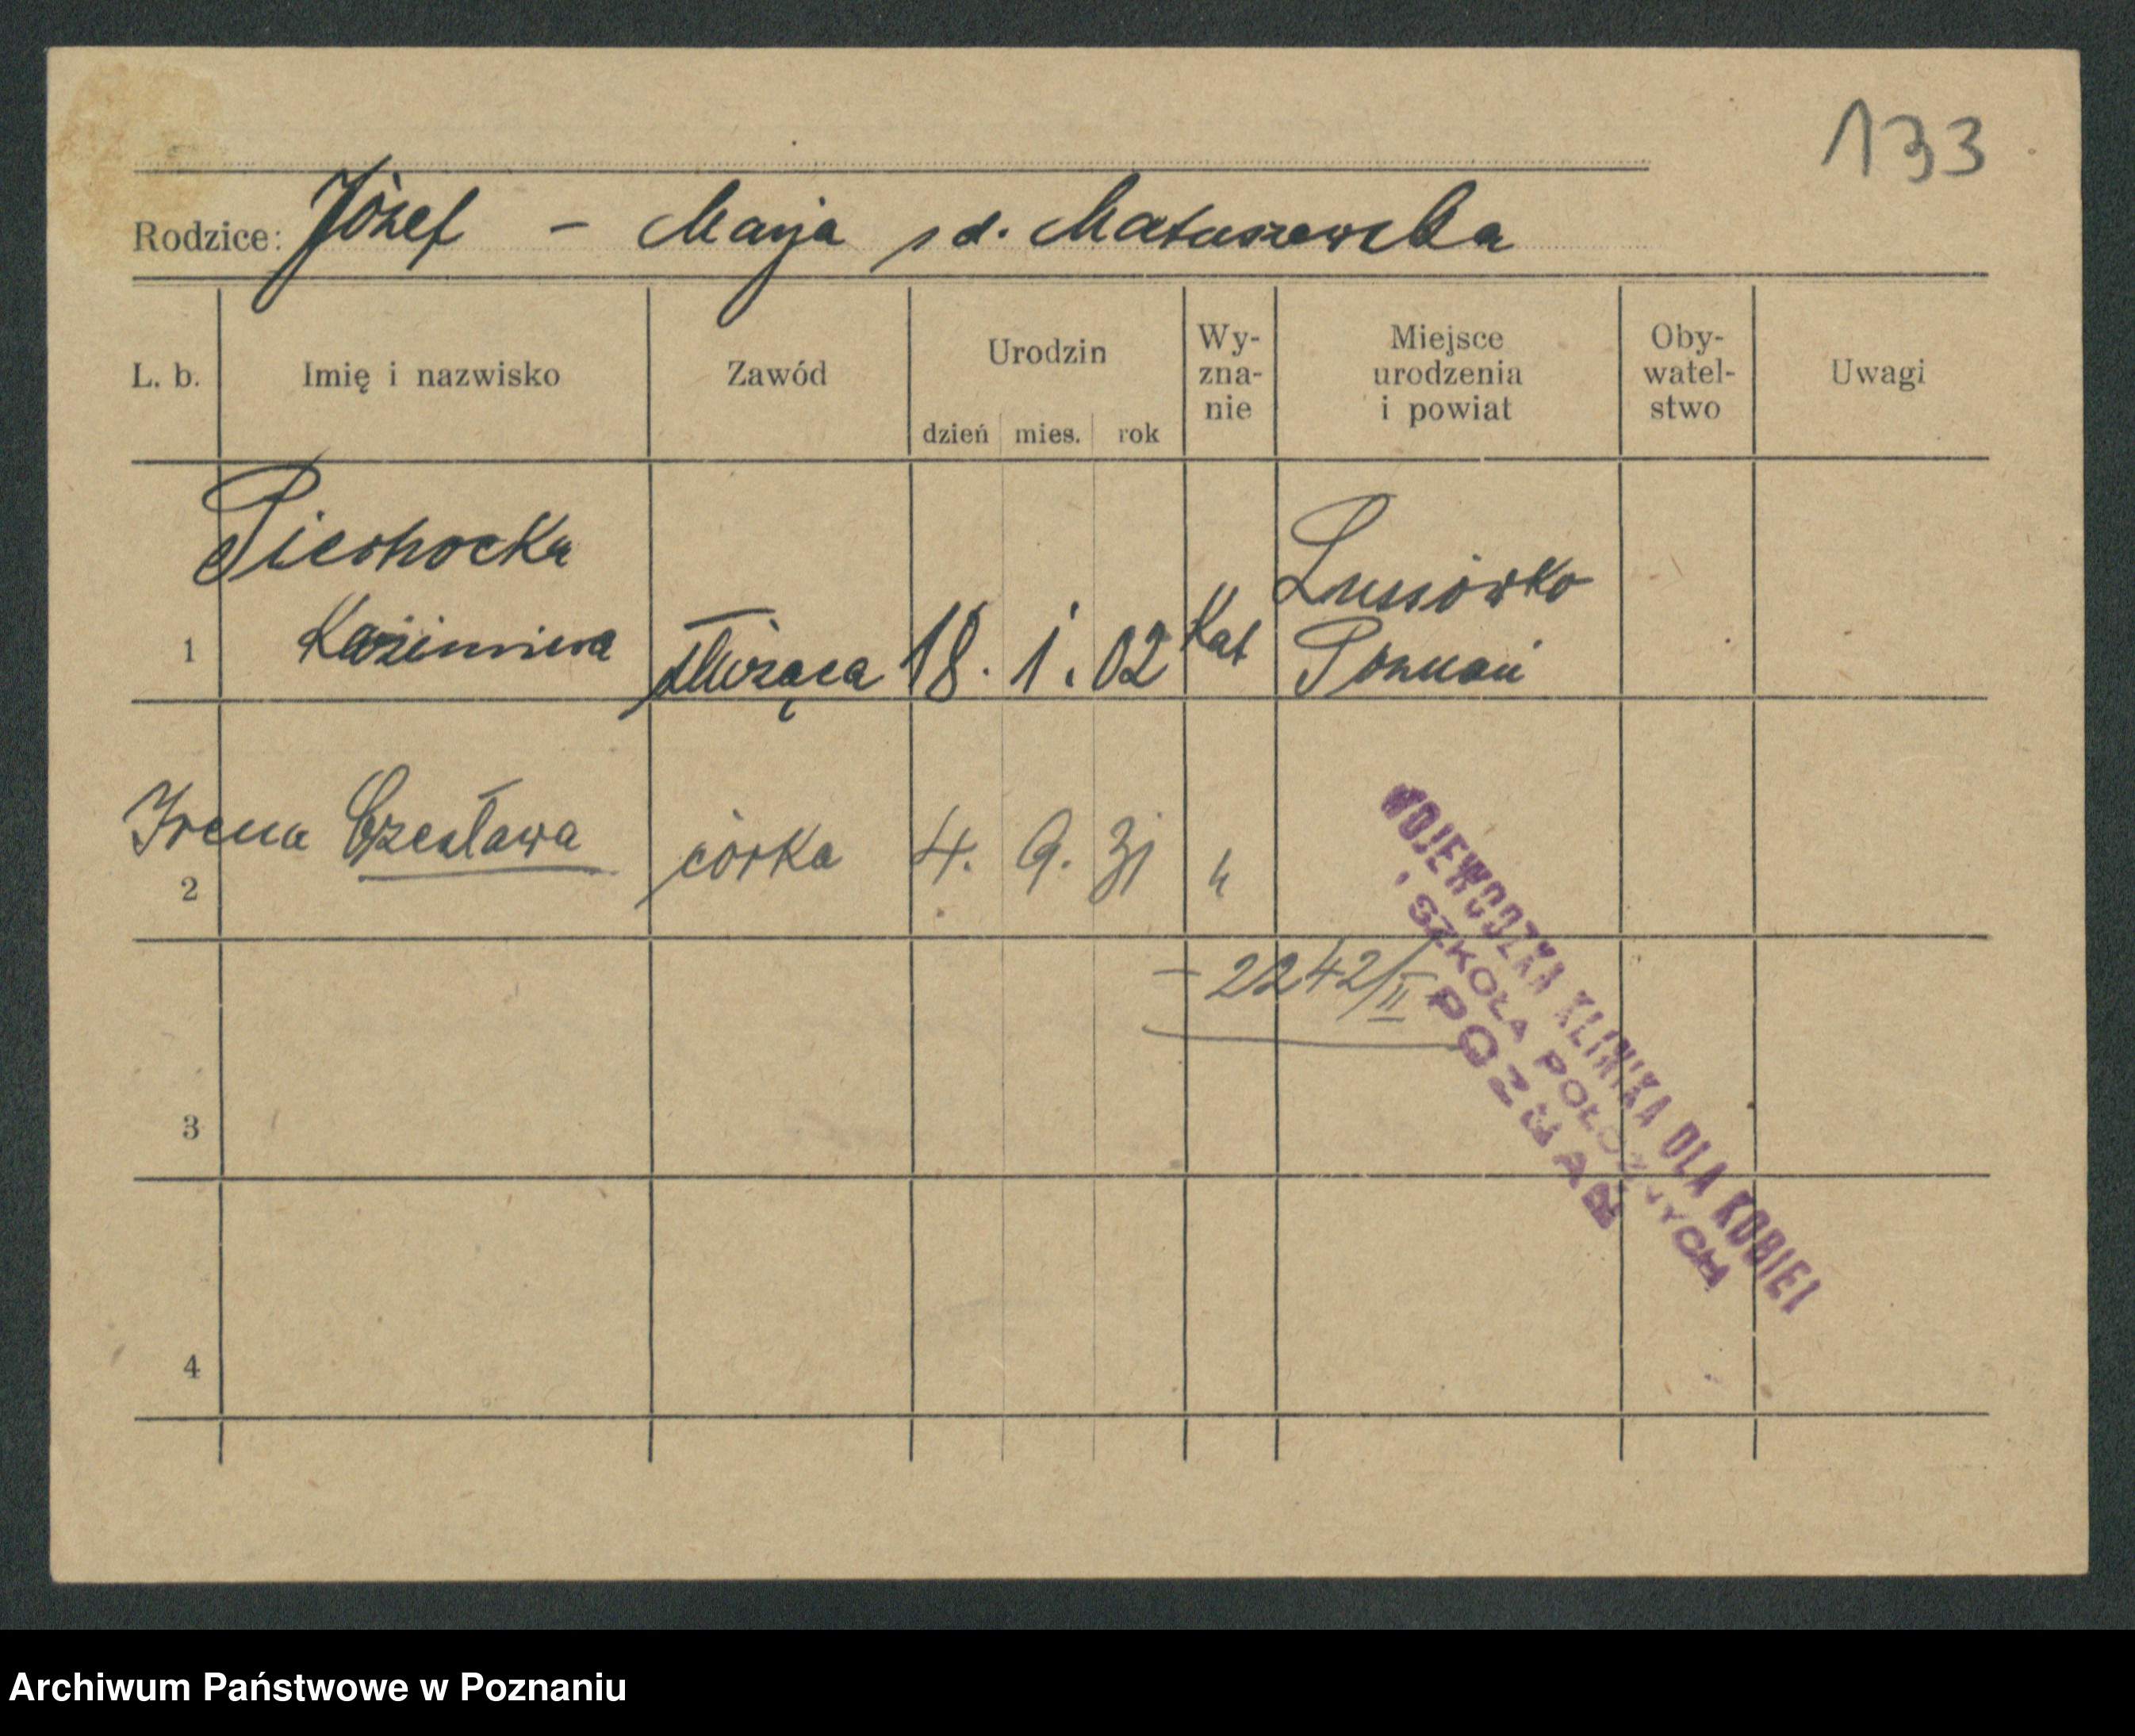 133
Rodzice: Józef – Marja s d. Matuszewska
L. b.
Imię i nazwisko
Zawód
Urodzin
dzień mies. rok
Wy-
zna-
nie
Miejsce
urodzenia
i powiat
Oby-
watel-
stwo
Uwagi
Piechocka
1 Kazimiera służąca 18. 1. 02 Kat
Lussówko
Poznań
2 Irena Czesława córka 4. 9. 31 "
– 2242/II
3
4
WOJEWÓDZKA KLINIKA DLA KOBIET
I SZKOŁA POŁOŻNYCH
POZNAŃ
Archiwum Państwowe w Poznaniu